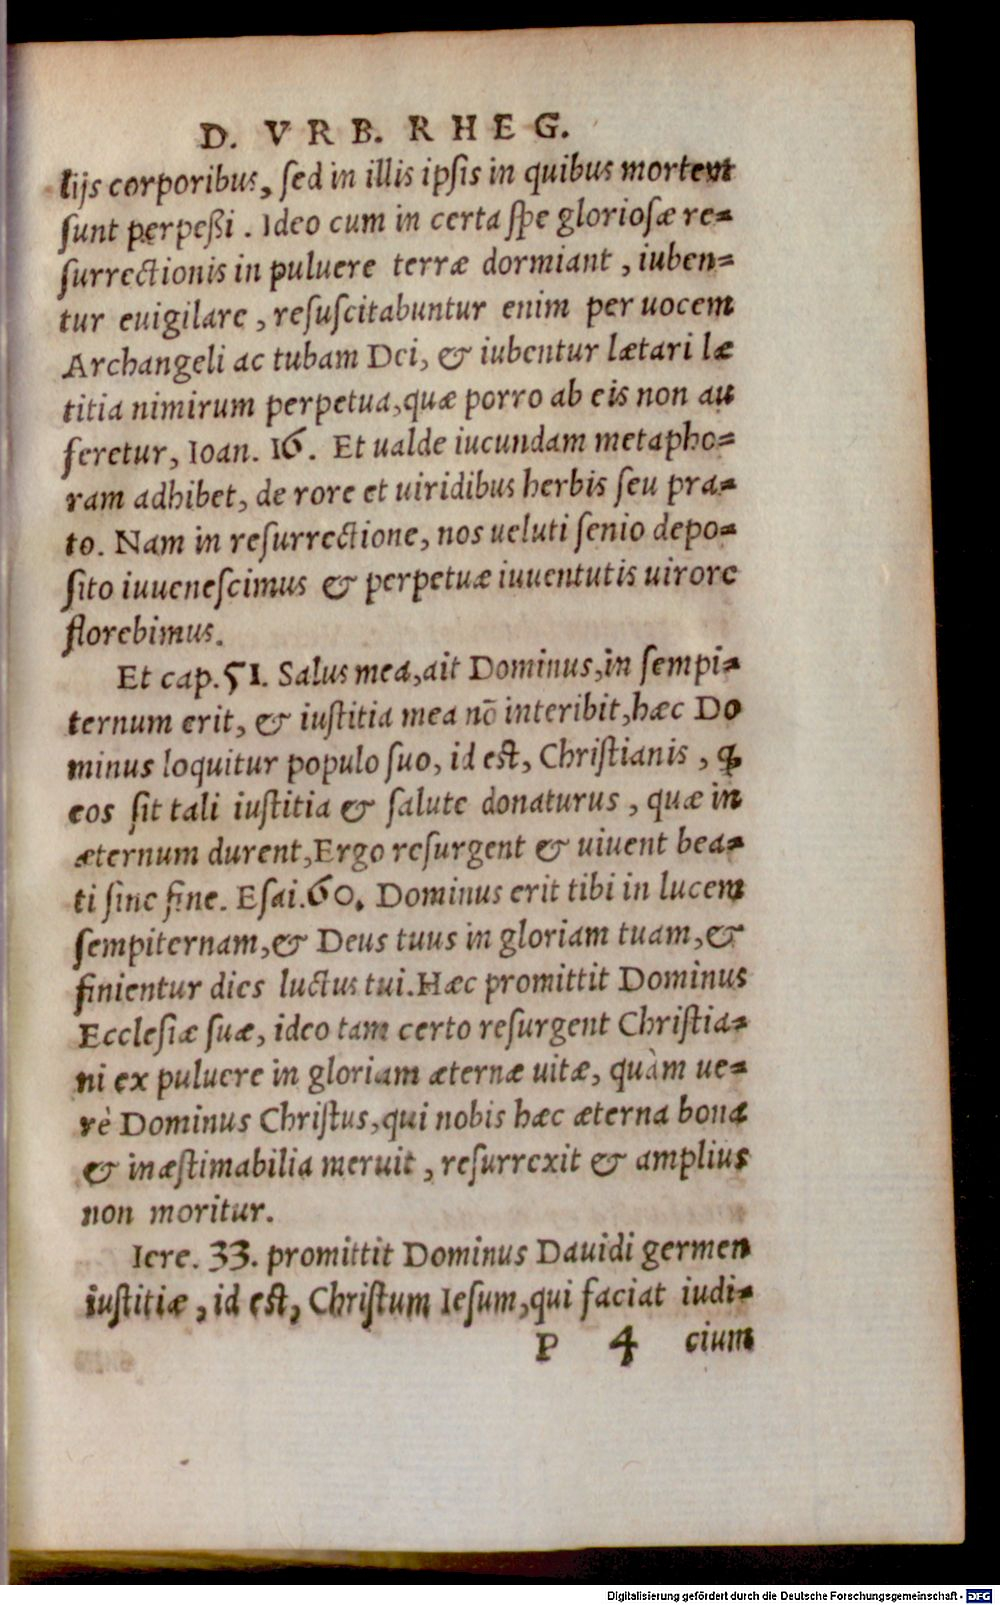 D. VRB. RHEG.
lijs corporibus, sed in illis ipsis in quibus mortem
sunt perpeßi. Ideo cum in certa spe gloriosæ re=
surrectionis in puluere terræ dormiant, iuben=
tur euigilare, resuscitabuntur enim per uocem
Archangeli ac tubam Dei, & iubentur lætari læ
titia nimirum perpetua, quæ porro ab eis non au
feretur, Ioan. 16. Et ualde iucundam metapho=
ram adhibet, de rore et uiridibus herbis seu pra=
to. Nam in resurrectione, nos ueluti senio depo=
sito iuuenescimus & perpetuæ iuuentutis uirore
florebimus.
Et cap. 51. Salus mea, ait Dominus, in sempi=
ternum erit, & iustitia mea nō interibit, hæc Do
minus loquitur populo suo, id est, Christianis, ꝙ
eos sit tali iustitia & salute donaturus, quæ in
æternum durent, Ergo resurgent & uiuent bea=
ti sine fine. Esai. 60. Dominus erit tibi in lucem
sempiternam, & Deus tuus in gloriam tuam, &
finientur dies luctus tui. Hæc promittit Dominus
Ecclesiæ suæ, ideo tam certo resurgent Christia=
ni ex puluere in gloriam æternæ uitæ, quàm ue=
rè Dominus Christus, qui nobis hæc æterna bona
& inæstimabilia meruit, resurrexit & amplius
non moritur.
Iere. 33. promittit Dominus Dauidi germen
iustitiæ, id est, Christum Iesum, qui faciat iudi=
P 4 cium
Digitalisierung gefördert durch die Deutsche Forschungsgemeinschaft - DFG